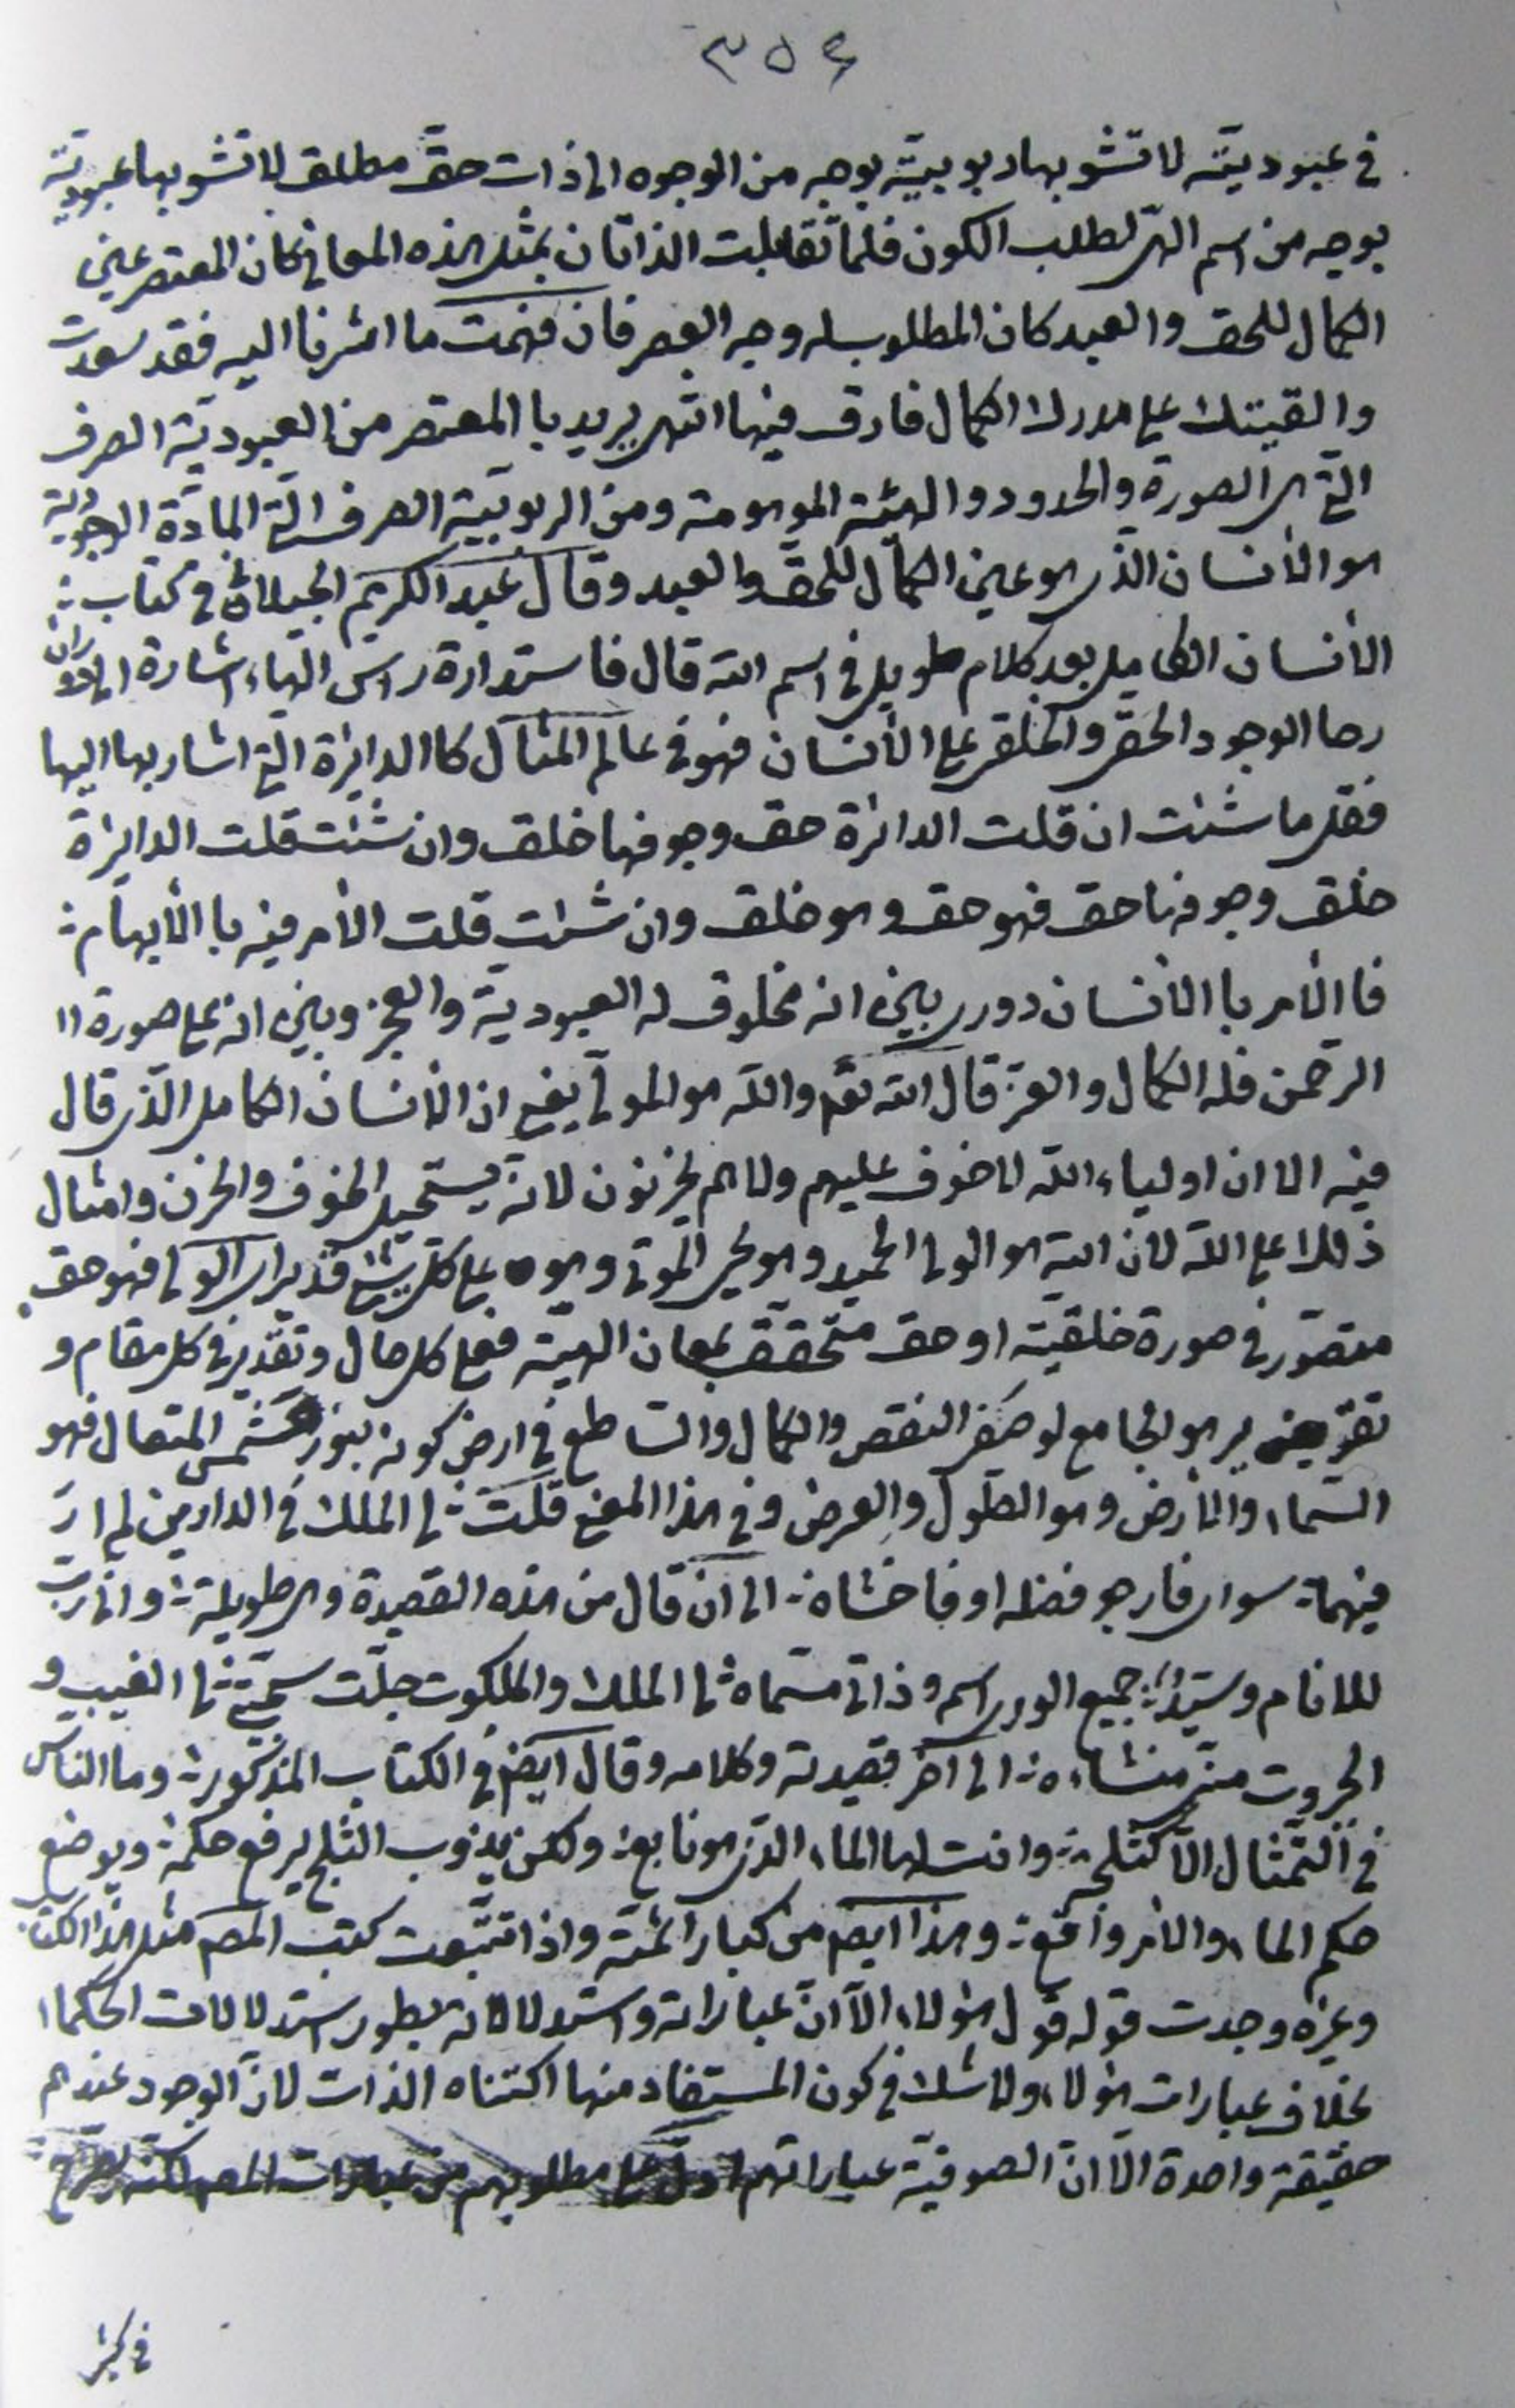 ٣٥٤
في عبوديته لا تشوبها ربوبية بوجه من الوجوه الى ذات حق مطلق لا تشوبها عبودية
بوجه من اسم الهي لطلب الكون فلما تقابلت الذاتان بمثل هذه المعاني كان المعتصر عين
الكمال للحق والعبد كان المطلوب له وجه العصر فان فهمت ما اشرنا اليه فقد سعدت
والقيتك على مدرك الكمال فارق فيها انتهى يريد با المعتصر من العبودية الصرف
التي هي الصورة والحدود والهيئة الموهومة ومن الربوبية الصرف التي المادة الوجودية
هو الأنسان الذي هو عين الكمال للحق والعبد وقال عبد الكريم الجيلاني في كتاب
الأنسان الكامل بعد كلام طويل في اسم الله قال فاستدارة رأس الهاء اشارة الى دوران
رحا الوجود الحقي والخلقي على الأنسان فهو في عالم المثال كا الدايرة التي اشار بها اليها
فقل ما شئت ان قلت الدائرة حق وجوفها خلق وان شئت قلت الدايرة
خلق وجوفها حق فهو حق وهو خلق وان شئت قلت الأمر فيه با الأبهام
فا الأمر با الأنسان دوري بين انه مخلوق له العبودية والعجز وبين انه على صورة
الرحمن فله الكمال والعز قال الله تعم والله هو المولى يعني ان الأنسان الكامل الذي قال
فيه الا ان اولياء الله لا خوف عليهم ولا هم يحزنون لانه يستحيل الخوف والحزن وامثال
ذلك على الله لان الله هو الولي الحميد وهو يحيي الموتى وهو على كل شئ قدير اي الولي فهو حق
متصور في صورة خلقية او حق متحقق بمعان الهية فعلى كل حال وتقدير في كل مقام و
تقرير هو الجامع لوصفي النقص والكمال والساطع في ارض كونه بنور شمس المتعال فهو
السماء والأرض وهو الطول والعرض وفي هذا المعنى قلت لي الملك في الدارين لم ار
فيهما سواي فارجو فضله او فاخشاه الى ان قال من هذه القصيدة وهي طويلة واني رب
للانام وسيد جميع الورى اسم وذاتي مسماه لي الملك والملكوت جلت سجيتي لي الغيب و
الجبروت مني منشاءه الى آخر قصيدته وكلامه وقال ايضم في الكتاب المذكور وما الناس
في التمثال الا كثلجة وانت لها الماء الذي هو نابع ولكن يذوب الثلج يرفع حكمه ويوضع
حكم الماء والامر واقع وهذا ايضم من كبار ائمته واذا تتبعت كتب المصم مثل هذا الكتاب
وغيره وجدت قوله قول هؤلاء الا ان عباراته واستدلالاته بطور استدلالات الحكماء
بخلاف عبارات هؤلاء ولا شك في كون المستفاد منها اكتناه الذات لان الوجود عندهم
حقيقة واحدة الا ان الصوفية عباراتهم
في كثير